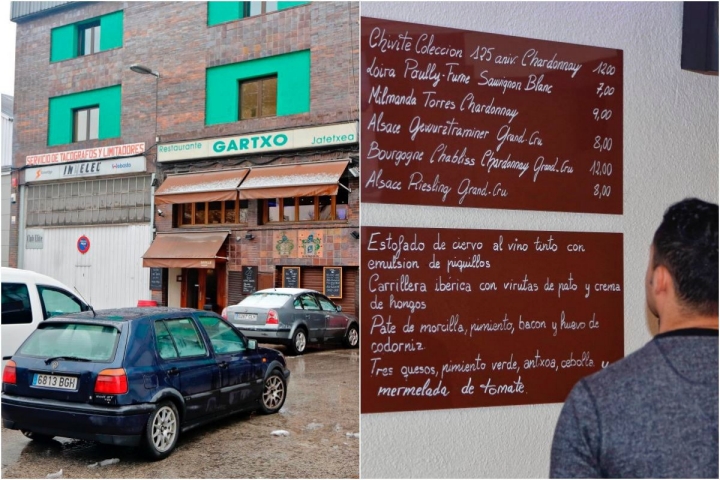 SERVICIO DE TACÓGRAFOS Y LIMITADORES
INTELEC
Restaurante GARTXO Jatetxea
6813 BGH
Chivite Coleccion 125 aniv. Chardonnay 12,00
Loira Poully-Fume Sauvignon Blanc 7,00
Milmanda Torres Chardonnay 9,00
Alsace Gewurztraminer Grand-Cru 8,00
Bourgogne Chabliss Chardonnay Grand-Cru 12,00
Alsace Riesling Grand-Cru 8,00
Estofado de ciervo al vino tinto con
emulsion de piquillos
Carrillera ibérica con virutas de pato y crema
de hongos
Pate de morcilla, pimiento, bacon y huevo de
codorniz.
Tres quesos, pimiento verde, antxoa, cebolle
mermelada de tomate.